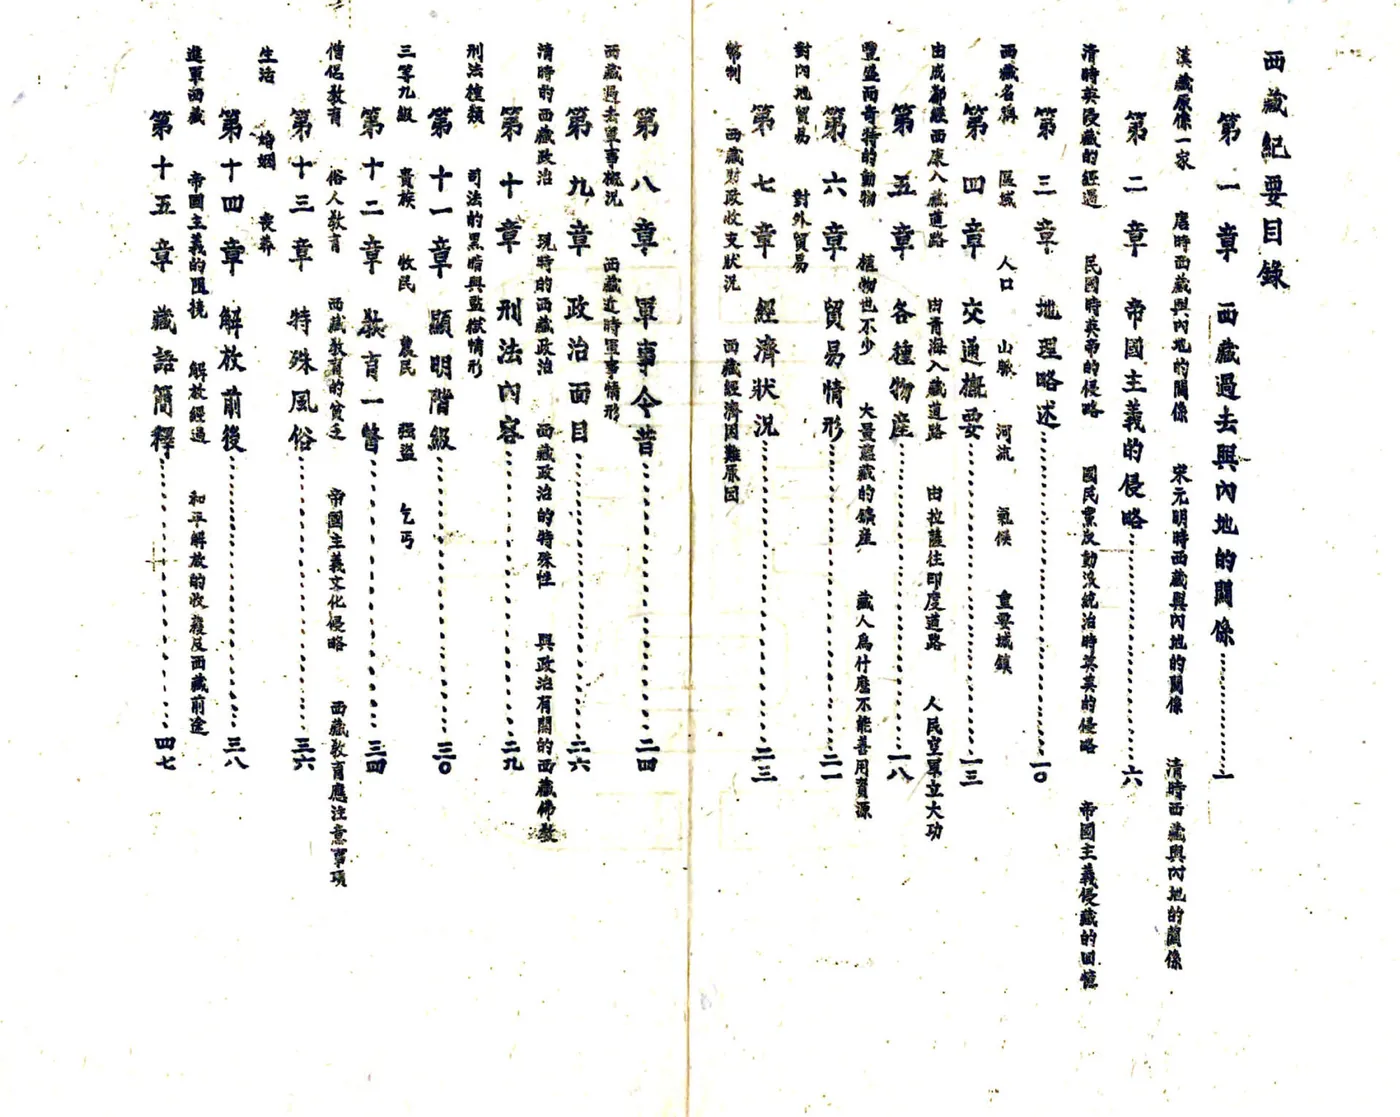 西藏紀要目錄
第一章　西藏過去與內地的關係…………一
漢藏原係一家　唐時西藏與內地的關係　宋元明時西藏與內地的關係　清時西藏與內地的關係
第二章　帝國主義的侵略…………六
清時英侵藏的經過　民國時英帝的侵略　國民黨反動派統治時英美的侵略　帝國主義侵藏的回憶
第三章　地理略述…………一〇
西藏名稱　區域　人口　山脈　河流　氣候　重要城鎮
第四章　交通概要…………一三
由成都經西康入藏道路　由青海入藏道路　由拉薩往印度道路　人民空軍立大功
第五章　各種物産…………一八
豐盛而奇特的動物　植物也不少　大量蘊藏的鑛產　藏人爲什麽不能善用資源
第六章　貿易情形…………二一
對內地貿易　對外貿易
第七章　經濟狀況…………二三
幣制　西藏財政收支狀況　西藏經濟困難原因
第八章　軍事今昔…………二四
西藏過去軍事概況　西藏近時軍事情形
第九章　政治面目…………二六
清時的西藏政治　現時的西藏政治　西藏政治的特殊性　與政治有關的西藏佛教
第十章　刑法內容…………二九
刑法種類　司法的黑暗與監獄情形
第十一章　顯明階級…………三〇
三等九級　貴族　牧民　農民　强盜　乞丐
第十二章　教育一瞥…………三四
僧侶教育　俗人教育　西藏教育的貧乏　帝國主義文化侵略　西藏教育應注意事項
第十三章　特殊風俗…………三六
生活　婚姻　喪葬
第十四章　解放前後…………三八
進軍西藏　帝國主義的阻撓　解放經過　和平解放的收穫及西藏前途
第十五章　藏語簡釋…………四七